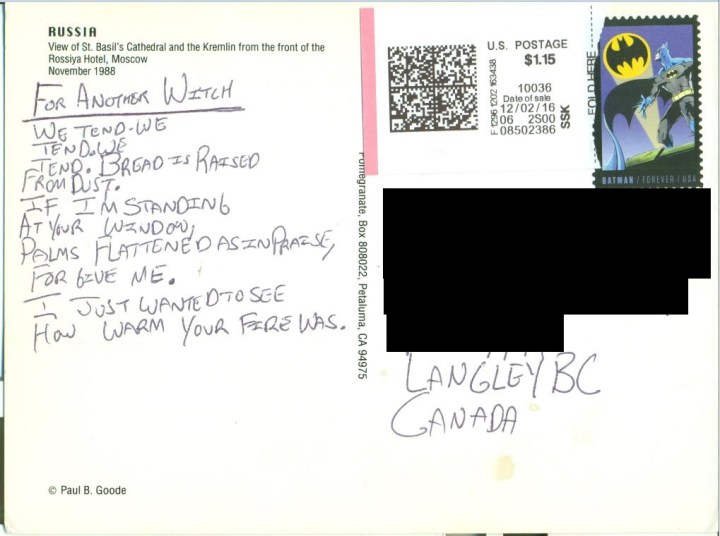 RUSSIA
View of St. Basil's Cathedral and the Kremlin from the front of the
Rossiya Hotel, Moscow
November 1988
FOR ANOTHER WITCH
WE TEND-WE
TEND-WE
TEND. BREAD IS RAISED
FROM DUST.
IF I'M STANDING
AT YOUR WINDOW,
PALMS FLATTENED AS IN PRAISE,
FORGIVE ME.
I JUST WANTED TO SEE
HOW WARM YOUR FIRE WAS.
© Paul B. Goode
Pomegranate, Box 808022, Petaluma, CA 94975
U.S. POSTAGE
$1.15
10036
Date of sale
12/02/16
06 2S00
08502386
SSK
FOLD HERE
BATMAN / FOREVER / USA
LANGLEY BC
CANADA